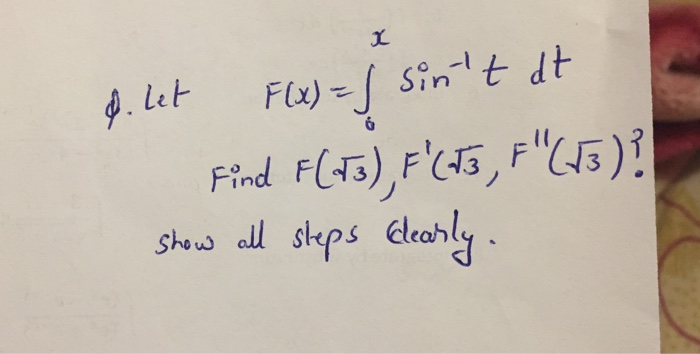 Q. Let F(x) = ∫₀ˣ Sin⁻¹ t dt
Find F(√3), F'(√3, F''(√3)?
Show all steps Clearly.